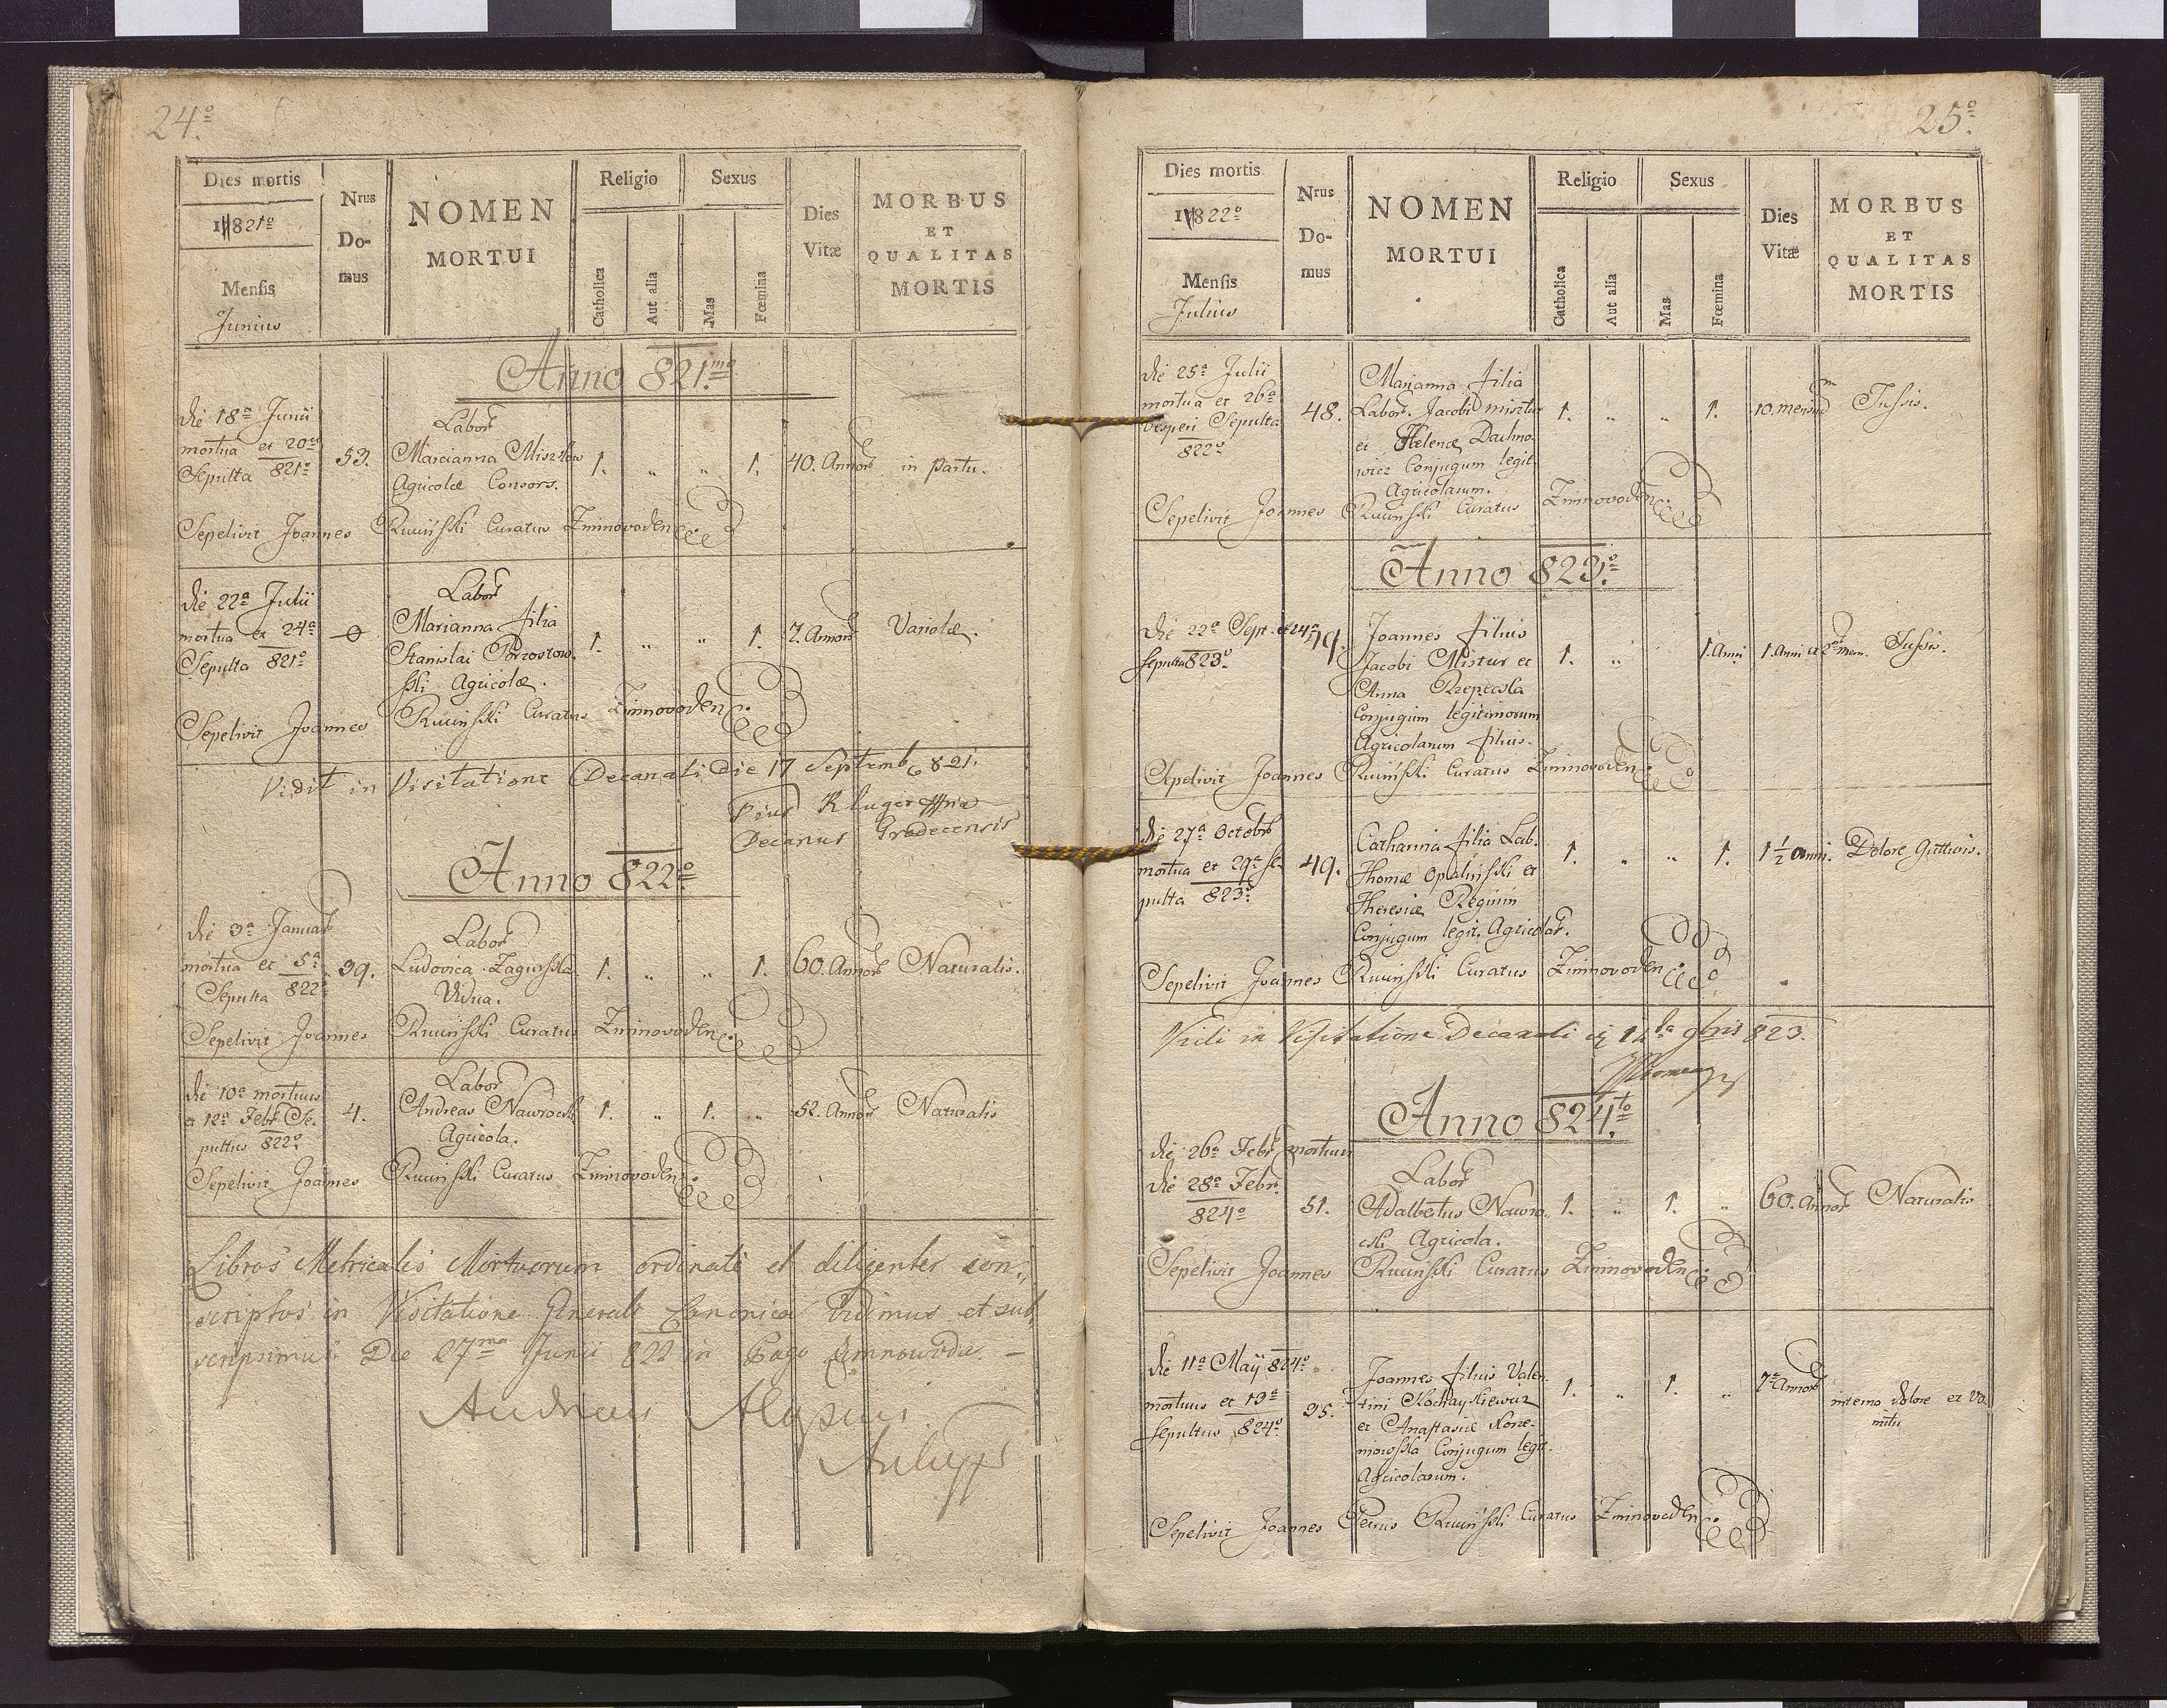 24.º
Dies mortis
1821º
Mensis
Junius
Nrus
Do-
mus
NOMEN
MORTUI
Religio
Catholica
Aut alia
Sexus
Mas
Fœmina
Dies
Vitæ
MORBUS
ET
QUALITAS
MORTIS
Anno 821.mo
die 18a Junii
mortua et 20a
Sepulta 821º
53.
Labor
Marcianna Misztur
Agricolæ Consors.
1. „ „ 1.
40. Annor
in partu.
Sepelivit Joannes Rucińsski Curatus Zimnovoden:
die 22a Julii
mortua et 24a
Sepulta 821º
0
Labor
Marianna filia
Stanislai Brzostow
sski Agricolæ.
1. „ „ 1.
7. Annor
Variolæ.
Sepelivit Joannes Rucińsski Curatus Zimnovoden:
Vidit in Visitatione Decanali Die 17 Septemb 821.
Pius Kluger mpria
Decanus Grodecensis
Anno 822º
die 3a Januar
mortua et 5a
Sepulta 822º
39.
Labor
Ludovica Zagurska
Vidua.
1. „ „ 1.
60. Annor
Naturalis.
Sepelivit Joannes Rucińsski Curatus Zimnovoden:
die 10a mortuus
et 12a Febr Se-
pultus 822º
4.
Labor
Andreas Nawrocki
Agricola.
1. „ 1. „
52. Annor
Naturalis
Sepelivit Joannes Rucińsski Curatus Zimnovoden:
Libros Metricales Mortuorum ordinate et diligenter con„
scriptos in Visitatione Generali Canonica Vidimus et sub
scripsimus. Die 27ma Junii 822 in Pago Zimnowoda. –
Andreas Aloysius
25º.
Dies mortis
1822º
Mensis
Julius
Nrus
Do-
mus
NOMEN
MORTUI
Religio
Catholica
Aut alia
Sexus
Mas
Fœmina
Dies
Vitæ
MORBUS
ET
QUALITAS
MORTIS
die 25a Julii
mortua et 26a
Vesperi Sepulta
822º
48.
Marianna filia
Labor. Jacobi Misztur
et Helenæ Dachno-
wicz Conjugum legit.
Agricolarum.
1. „ „ 1.
10. mensium
Tussis.
Sepelivit Joannes Rucińsski Curatus Zimnovoden:
Anno 823º
die 22a Sept. et 24a
sepulta 823º
19.
Joannes filius
Jacobi Mistur et
Anna Rzepecka
Conjugum legitimorum
Agricolarum filius.
1. „ 1. Anni
1. Anni et 2 men.
Tussis.
Sepelivit Joannes Rucińsski Curatus Zimnovoden:
die 27a Octobr
mortua et 29a se-
pulta 823º
49.
Catharina filia Lab.
Thomæ Opalinsski et
Theresiæ Reginin
Conjugum legit. Agricolar.
1. „ „ 1.
1 1/2 anni.
Dolore Gutturis.
Sepelivit Joannes Rucińsski Curatus Zimnovoden:
Vidi in Visitatione Decanali 9bris 823.
Anno 824.to
die 26a Febr mortuus
die 28a Febr.
824º
51.
Labor
Adalbertus Nawro-
cki Agricola.
1. „ 1. „
60. Annor
Naturalis
Sepelivit Joannes Rucińsski Curatus Zimnovoden:
die 11a Maÿ 824º
mortuus et 13a
sepultus 824º
35.
Joannes filius Valen-
tini Kochaykiewicz
et Anastasiæ Korze-
mowska Conjugum legit.
Agricolarum.
1. „ 1. „
7a Annor
interno dolore et Vo-
mitu
Sepelivit Joannes Petrus Rucińsski Curatus Zimnovoden: